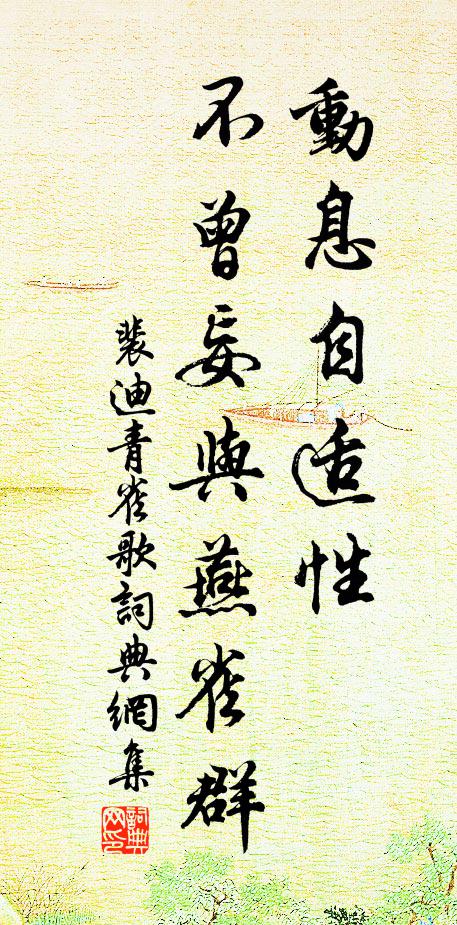 動息自適性
不曾妄與燕雀群
裴迪青雀歌詞典網集
詞典网印